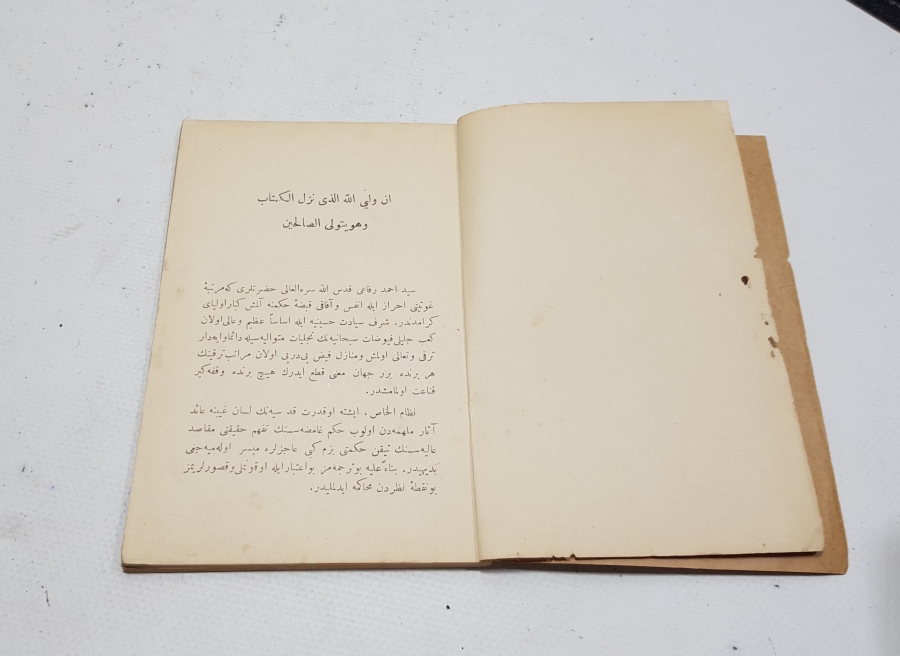 ان وليّ الله الذى نزل الكتاب
وهو يتولى الصالحين
سيد احمد رفاعى قدس الله سره العالى حضرتلرى كه مرتبۀ
غوثيتى احراز ايله انفس و آفاقى قبضۀ حكمنه آلمش كبار اولياى
كرامدندر. شرف سيادت حسينيه ايله اساساً عظيم و عالى اولان
كعب جليلى فيوضات سبحانيه‌نك تجليات متواليه‌سيله دائما وايه‌دار
ترقى و تعالى اولمش و منازل فيض پى‌درپى اولان مراتب ترقينك
هر برنده برر جهان معنى قطع ايدرك هيچ برنده وقفه‌گير
قناعت اولمامشدر.
نظام الخاص. ايشته او قدرت قدسيه‌نك لسان غيبنه عائد
آثار ملهمه‌دن اولوب حكم غامضه‌سنك تفهم حقيقتى مقاصد
عاليه‌سنك تيقن حكمتى بزم كبى عاجزلره ميسر اوله‌ميه‌جغى
بديهيدر. بناءً عليه بو ترجمه‌مز بو اعتبار ايله اوقونملى و قصورلريمز
بو نقطۀ نظردن محاكمه ايدلمليدر.